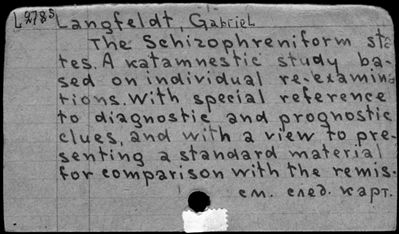 L278s Langfeldt, Gabriel
The Schizophreniform sta-
tes. A katamnestic study ba-
sed on individual re-examina
tions. With special reference
to diagnostic and prognostic
clues, and with a view to pre-
senting a standard material
for comparison with the remis-
см. след. карт.